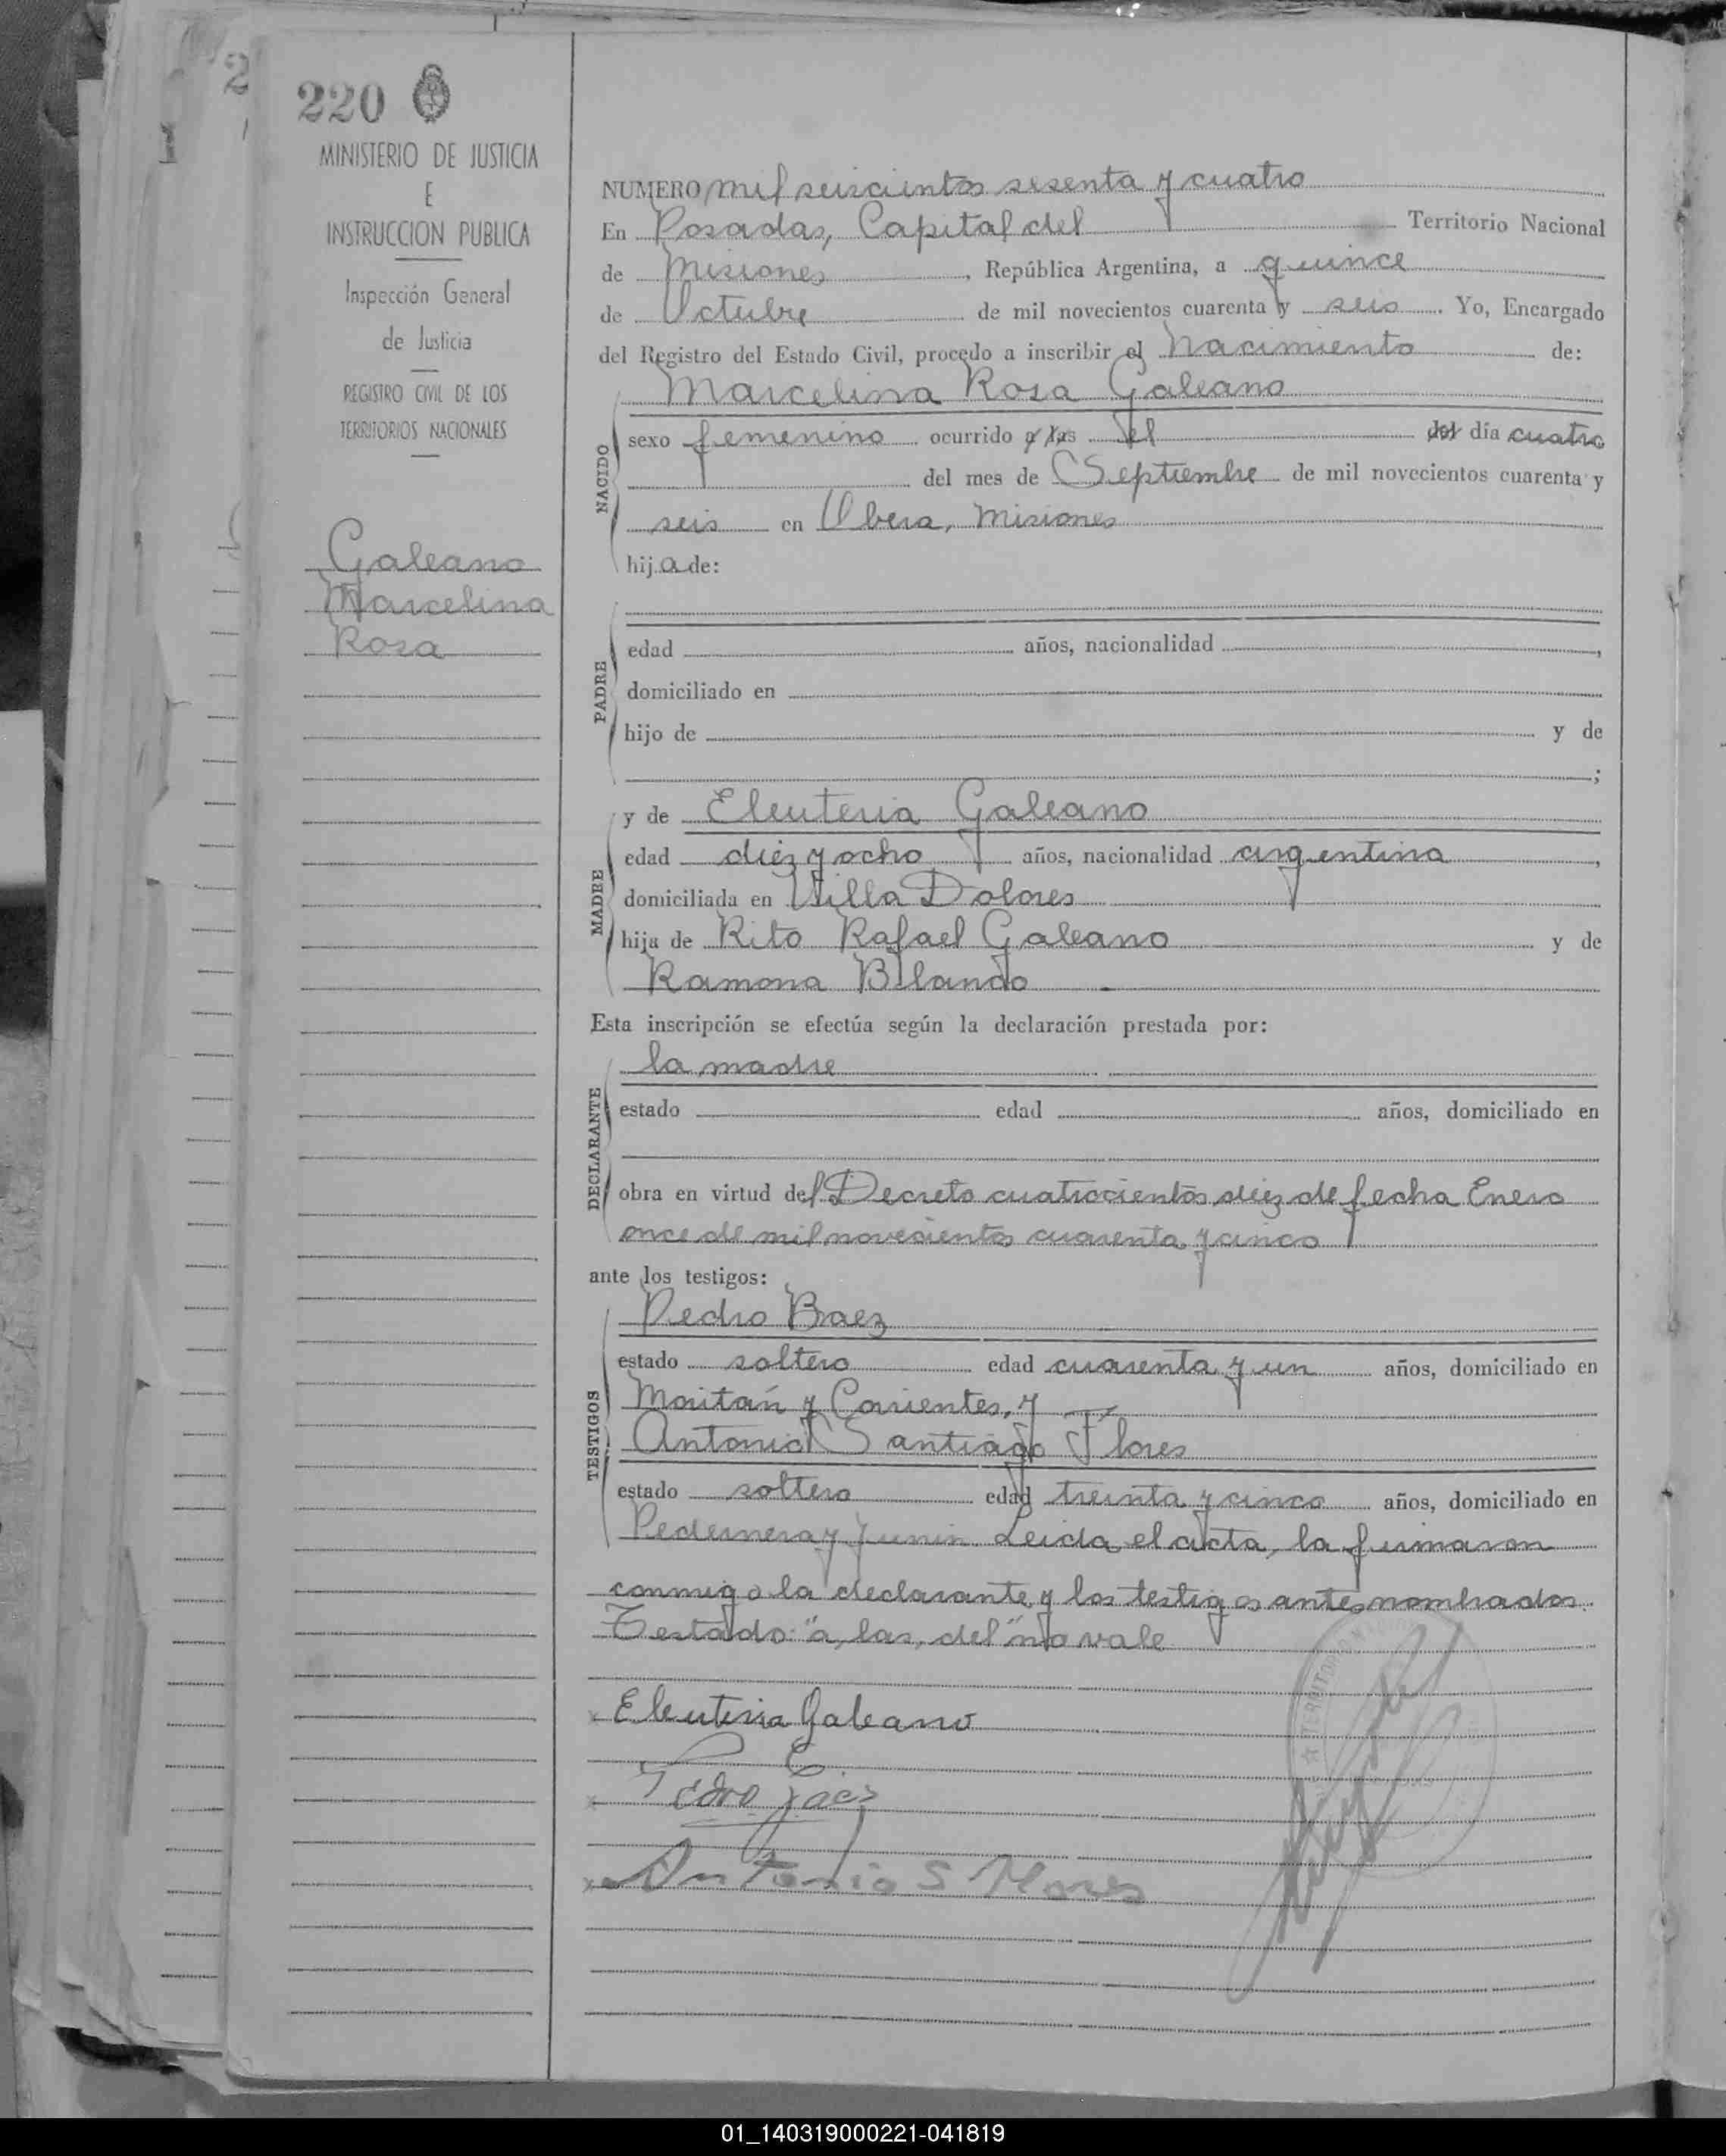 220
MINISTERIO DE JUSTICIA
E
INSTRUCCION PUBLICA
Inspección General
de Justicia
REGISTRO CIVIL DE LOS
TERRITORIOS NACIONALES
Galeano
Marcelina
Rosa
NUMERO mil seiscientos sesenta y cuatro
En Posadas, Capital del Territorio Nacional
de Misiones, República Argentina, a quince
de Octubre de mil novecientos cuarenta y seis. Yo, Encargado
del Registro del Estado Civil, procedo a inscribir el Nacimiento de:
Marcelina Rosa Galeano
NACIDO
sexo femenino ocurrido a las el del día cuatro
del mes de Septiembre de mil novecientos cuarenta y
seis en Obera, Misiones
hija de:
PADRE
edad años, nacionalidad ,
domiciliado en
hijo de y de
;
MADRE
y de Eleuteria Galeano
edad diez y ocho años, nacionalidad argentina,
domiciliada en Villa Dolores
hija de Rito Rafael Galeano y de
Ramona Blando
Esta inscripción se efectúa según la declaración prestada por:
DECLARANTE
la madre
estado edad años, domiciliado en
obra en virtud del Decreto cuatrocientos diez de fecha Enero
once de mil novecientos cuarenta y cinco
ante los testigos:
TESTIGOS
Pedro Baez
estado soltero edad cuarenta y un años, domiciliado en
Maitán y Corrientes, y
Antonio Santiago Flores
estado soltero edad treinta y cinco años, domiciliado en
Pedernera y Junin Leida el acta, la firmaron
conmigo la declarante y los testigos antes nombrados.
Testado: "a, las, del" no vale
x Eleuteria Galeano
x Pedro Baez
x Antonio S Flores
01_140319000221-041819